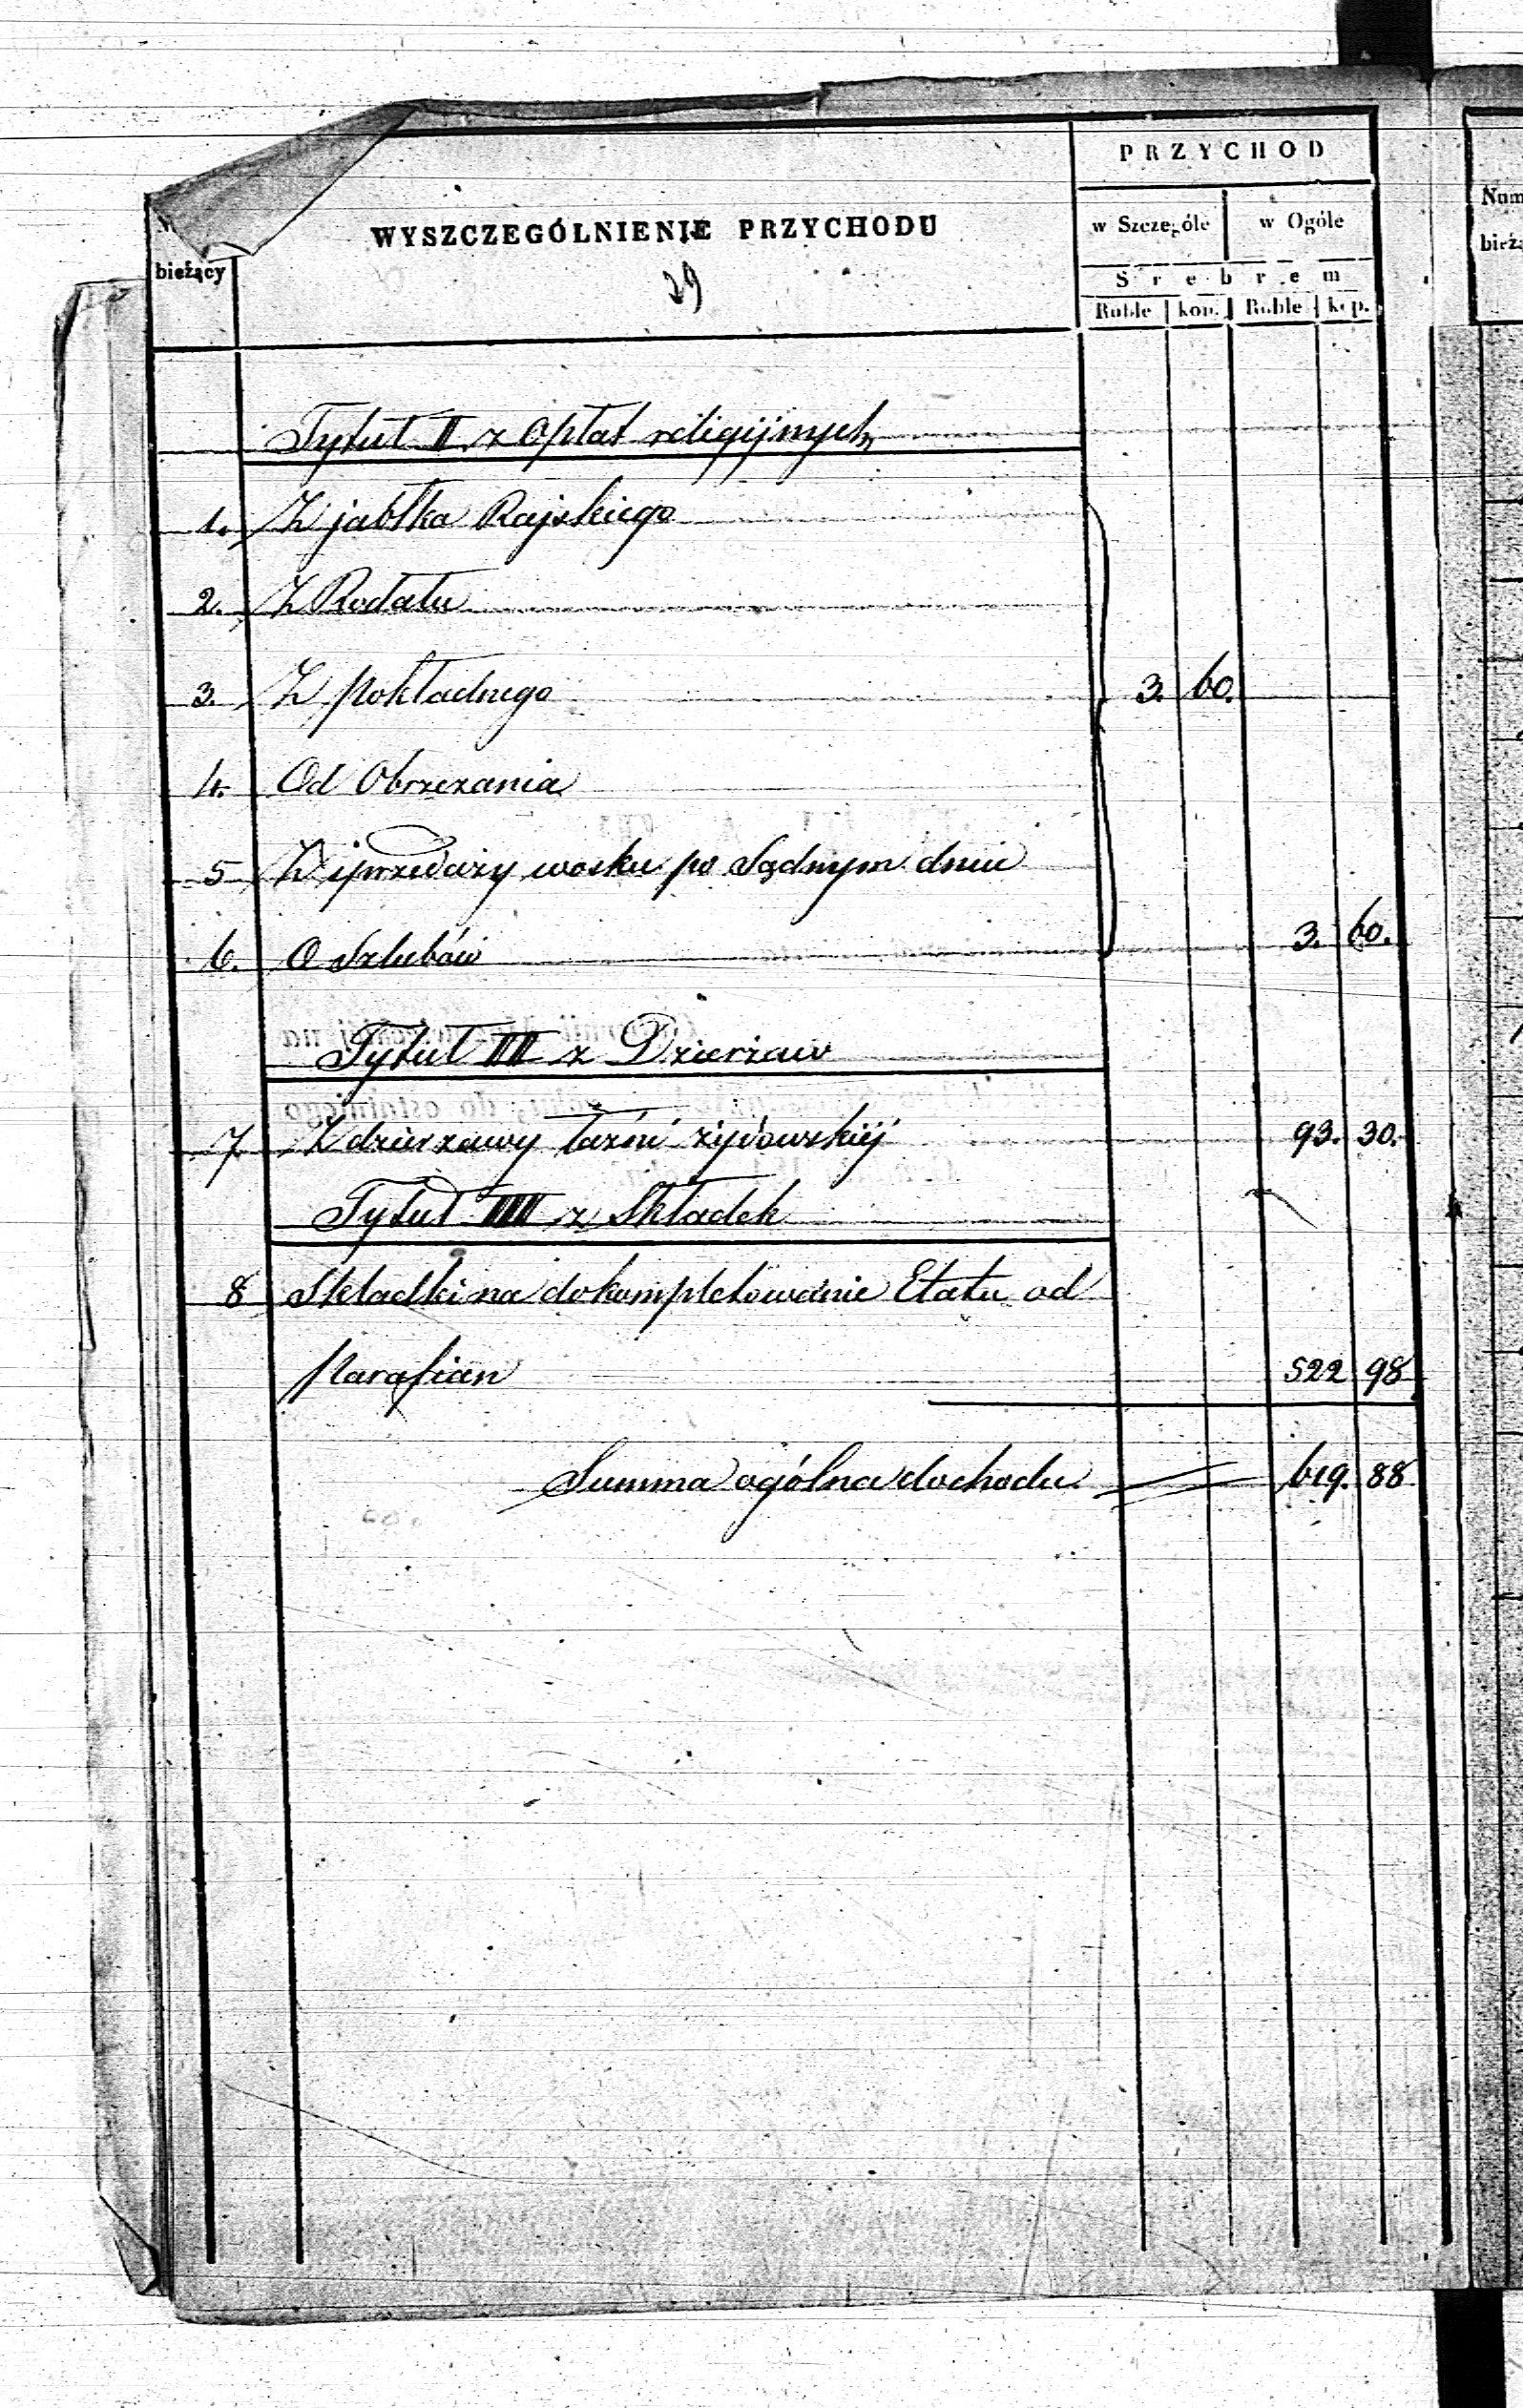 PRZYCHOD
WYSZCZEGÓLNIENIE PRZYCHODU
w Szczególe w Ogóle
bieżący
29
Srebrem
Ruble kop. Ruble kop.
Num
bieżą
Tytuł II z Opłat religijnych
1. Z jabłka Rajskiego
2. Z Rodału
3. Z pokładnego 3. 60.
4. Od Obrzezania
5 Z sprzedaży wosku po Sądnym dniu
6. O Szlubów 3. 60.
Tytuł III z Dzierżaw
7. Z dzierżawy łaźni żydowskiéj 93. 30.
Tytuł IIII z Składek
8 Składki na dokompletowanie Etatu od
Parafian 522 98
Summa ogólna dochodu 619. 88